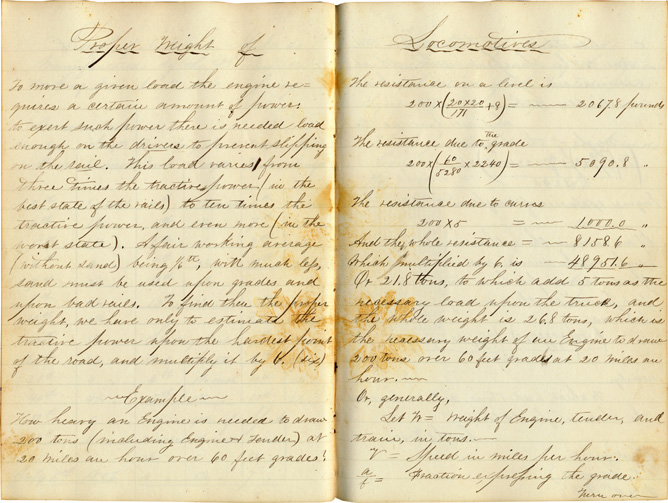 Proper Weight of
To move a given load the engine re-
queres a certain amount of power:
to exert such power there is needed load
enough on the drivers to prevent slipping
on the rail. This load varies from
three times the tractive power (in the
best state of the rails) to ten times the
tractive power, and even more (in the
worst state). A fair working average
(without sand) being 1/6th, with much less,
sand must be used upon grades and
upon bad rails. To find then the proper
weight, we have only to estimate the
tractive power upon the hardest point
of the road, and multiply it by 6. (six)
Example
How heavy an Engine is needed to draw
200 tons (including Engine & Tender) at
20 miles an hour over 60 feet grades?
Locomotives
The resistance on a level is
200 x (20 x 20/171 + 8) = 2067.8 pounds
The resistance due to the grade
200 x (60/5280 x 2240) = 5090.8 "
The resistance due to curves
200 x 5 = 1000.0 "
And the whole resistance = 8158.6 "
Which multiplied by 6 is 48951.6
Or 21.8 tons, to which add 5 tons as the
necessary load upon the truck, and
the whole weight is 26.8 tons, which is
the necessary weight of an Engine to draw
200 tons over 60 feet grades at 20 miles an
hour.
Or, generally,
Let W = Weight of Engine, tender, and
train, in tons.
V = Speed in miles per hour.
= Fraction expressing the grade.
Turn over